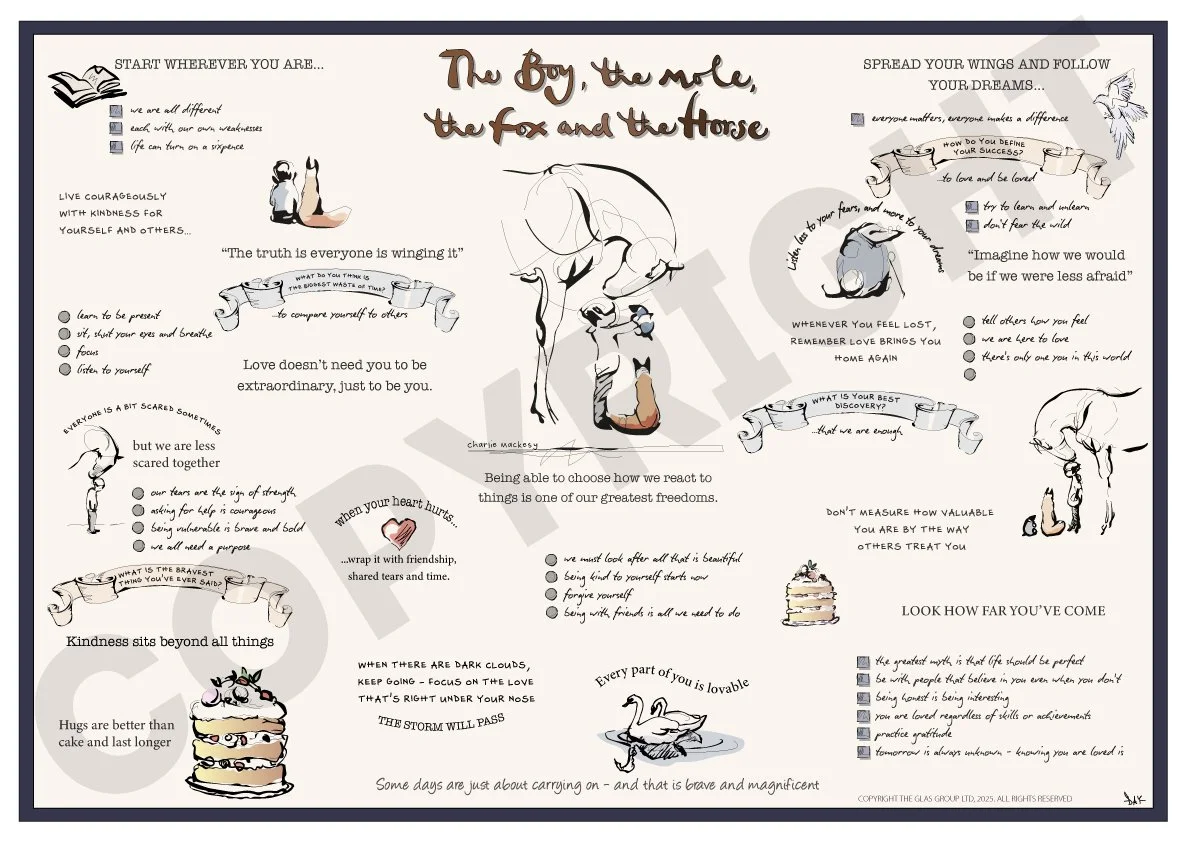 The Boy, the mole,
the fox and the Horse
START WHEREVER YOU ARE...
we are all different
each with our own weaknesses
life can turn on a sixpence
LIVE COURAGEOUSLY
WITH KINDNESS FOR
YOURSELF AND OTHERS...
"The truth is everyone is winging it"
WHAT DO YOU THINK IS
THE BIGGEST WASTE OF TIME?
...to compare yourself to others
learn to be present
sit, shut your eyes and breathe
focus
listen to yourself
Love doesn't need you to be
extraordinary, just to be you.
EVERYONE IS A BIT SCARED SOMETIMES
but we are less
scared together
our tears are the sign of strength
asking for help is courageous
being vulnerable is brave and bold
we all need a purpose
WHAT IS THE BRAVEST
THING YOU'VE EVER SAID?
Kindness sits beyond all things
Hugs are better than
cake and last longer
when your heart hurts...
...wrap it with friendship,
shared tears and time.
WHEN THERE ARE DARK CLOUDS,
KEEP GOING - FOCUS ON THE LOVE
THAT'S RIGHT UNDER YOUR NOSE
THE STORM WILL PASS
charlie mackesy
Being able to choose how we react to
things is one of our greatest freedoms.
we must look after all that is beautiful
being kind to yourself starts now
forgive yourself
being with friends is all we need to do
Every part of you is lovable
Some days are just about carrying on - and that is brave and magnificent
SPREAD YOUR WINGS AND FOLLOW
YOUR DREAMS...
everyone matters, everyone makes a difference
HOW DO YOU DEFINE
YOUR SUCCESS?
...to love and be loved
try to learn and unlearn
don't fear the wild
Listen less to your fears, and more to your dreams
"Imagine how we would
be if we were less afraid"
WHENEVER YOU FEEL LOST,
REMEMBER LOVE BRINGS YOU
HOME AGAIN
tell others how you feel
we are here to love
there's only one you in this world
WHAT IS YOUR BEST
DISCOVERY?
...that we are enough
DON'T MEASURE HOW VALUABLE
YOU ARE BY THE WAY
OTHERS TREAT YOU
LOOK HOW FAR YOU'VE COME
the greatest myth is that life should be perfect
be with people that believe in you even when you don't
being honest is being interesting
you are loved regardless of skills or achievements
practice gratitude
tomorrow is always unknown - knowing you are loved is
COPYRIGHT THE GLAS GROUP LTD, 2025. ALL RIGHTS RESERVED
DAK
COPYRIGHT